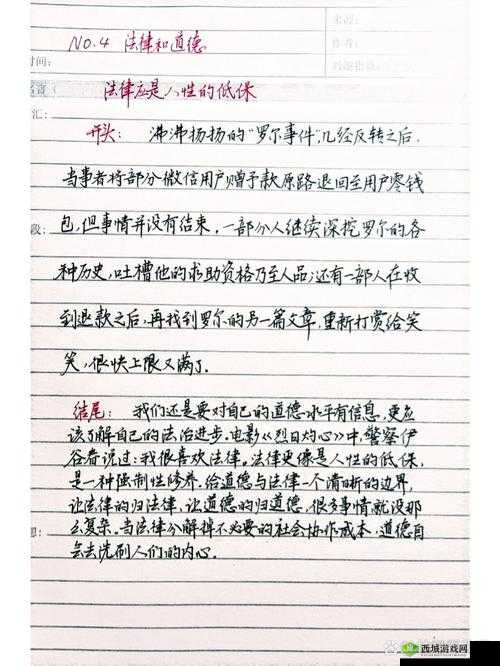 来源:
NO.4 法律和道德
作者:
时间:
法律应是人性的低保
汇:
开头: 沸沸扬扬的“罗尔事件”,几经反转之后,
当事者将部分微信用户赠予款原路退回至用户零钱
包,但事情并没有结束,一部分人继续深挖罗尔的各
段:
种历史,吐槽他的求助资格乃至人品;还有一部人在收
到退款之后,再找到罗尔的另一篇文章,重新打赏给笑
笑,很快上限又满了.
结尾: 我们还是要对自己的道德水平有信息,更应
该了解自己的法治进步.电影《烈日灼心》中,警察伊
谷春说过:我很喜欢法律。法律更像是人性的低保,
是一种强制性修养,给道德与法律一个清晰的边界,
让法律的归法律,让道德的归道德,很多事情就没那
么复杂。当法律分解掉不必要的社会协作成本,道德自
会去洗刷人们的内心。
西城游戏网